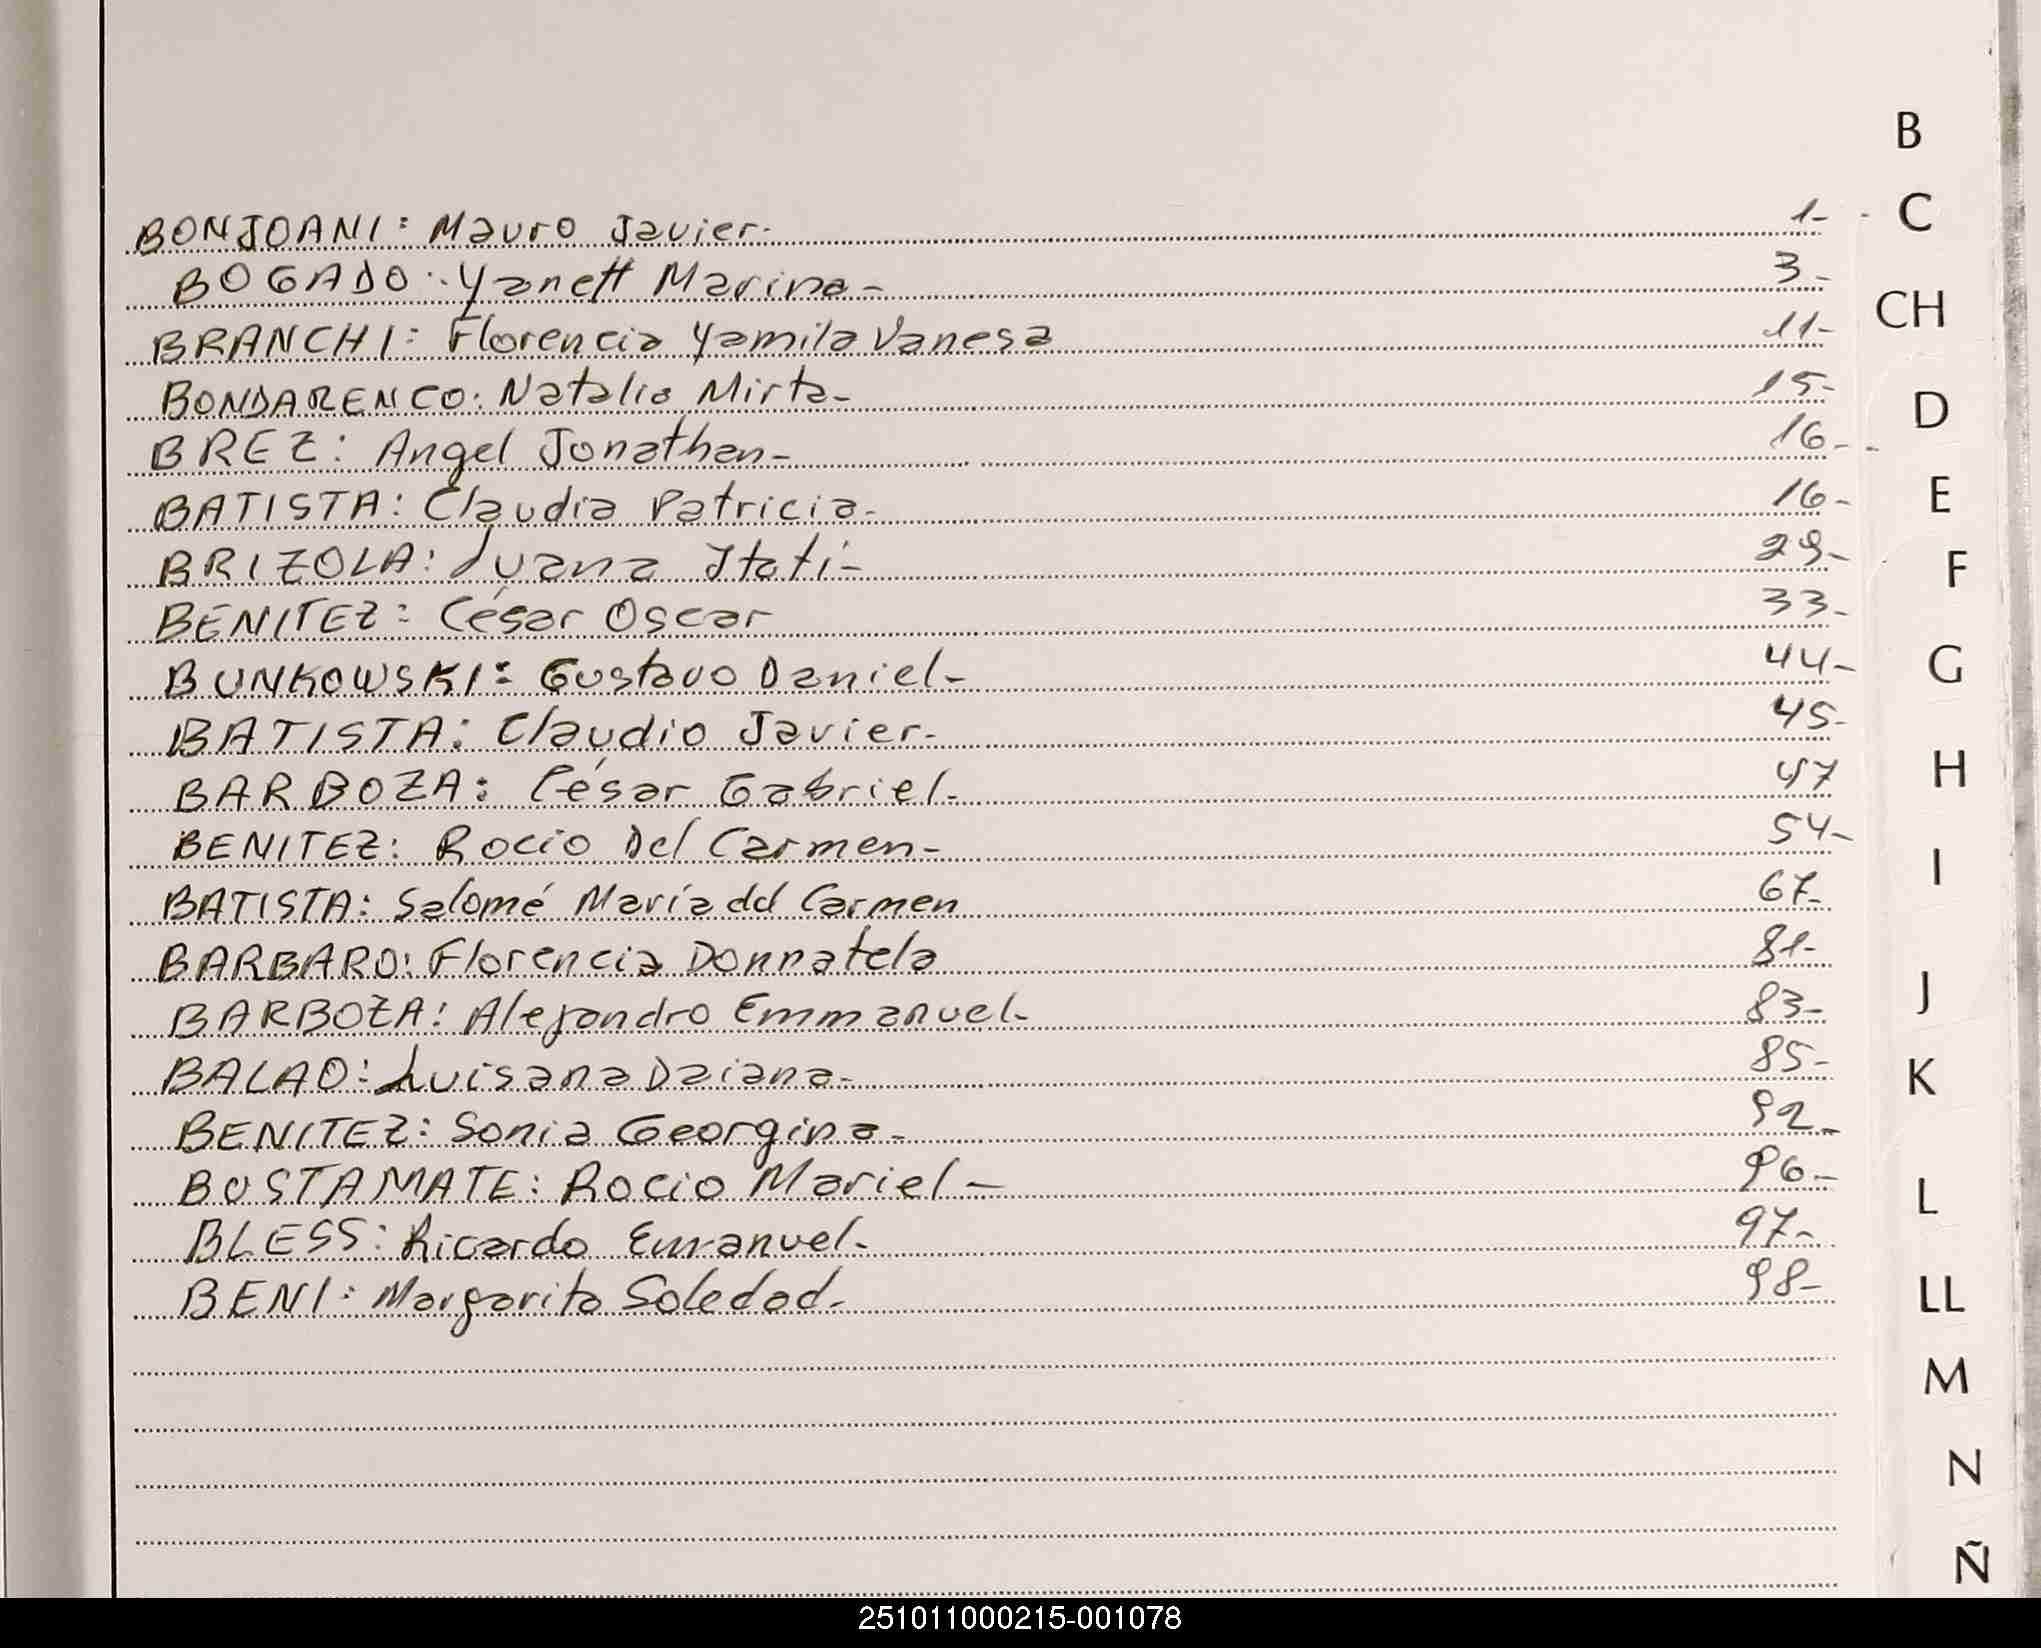 BONJOANI: Mauro Javier. 1-
BOGADO: Yanett Marina- 3-
BRANCHI: Florencia Yamila Vanesa 11-
BONDARENCO: Natalia Mirta- 15-
BREZ: Angel Jonathan- 16-
BATISTA: Claudia Patricia- 16-
BRIZOLA: Luana Itatí- 29-
BENITEZ: César Oscar 33-
BUNKOWSKI: Gustavo Daniel- 44-
BATISTA: Claudio Javier- 45-
BARBOZA: César Gabriel- 47
BENITEZ: Rocio Del Carmen- 54-
BATISTA: Salomé María del Carmen 67-
BARBARO: Florencia Donnatela 81-
BARBOZA: Alejandro Emmanuel- 83-
BALAO: Luisana Daiana- 85-
BENITEZ: Sonia Georgina- 92-
BUSTAMATE: Rocio Mariel- 96-
BLESS: Ricardo Emanuel- 97-
BENI: Margarita Soledad- 98-
B
C
CH
D
E
F
G
H
I
J
K
L
LL
M
N
Ñ
251011000215-001078